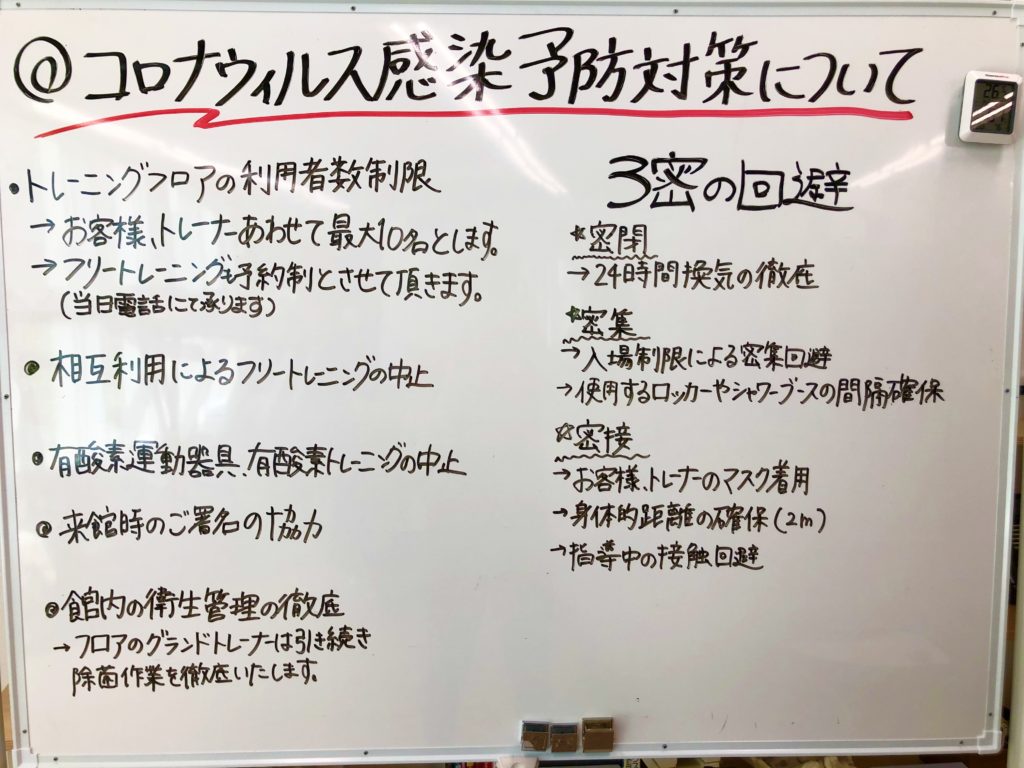 @コロナウィルス感染予防対策について
・トレーニングフロアの利用者数制限
→お客様、トレーナーあわせて最大10名とします。
→フリートレーニングも予約制とさせて頂きます。
(当日電話にて承ります)
・相互利用によるフリートレーニングの中止
・有酸素運動器具、有酸素トレーニングの中止
・来館時のご署名の協力
・館内の衛生管理の徹底
→フロアのグランドトレーナーは引き続き
除菌作業を徹底いたします。
3密の回避
☆密閉
→24時間換気の徹底
☆密集
→入場制限による密集回避
→使用するロッカーやシャワーブースの間隔確保
☆密接
→お客様、トレーナーのマスク着用
→身体的距離の確保(2m)
→指導中の接触回避